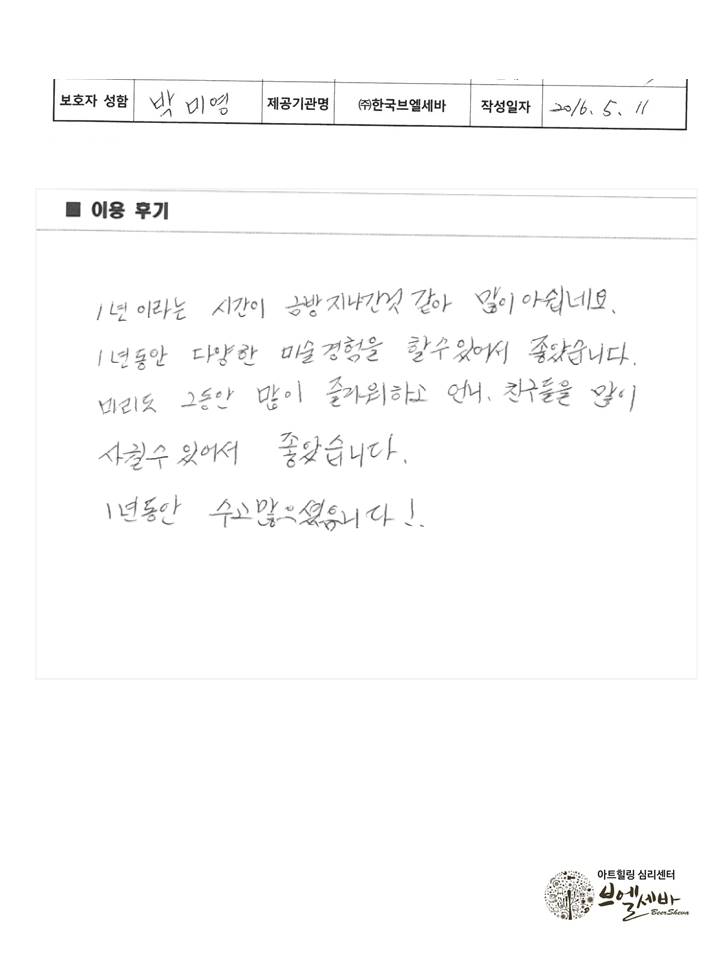 보호자 성함 박미영 제공기관명 ㈜한국브엘세바 작성일자 2016. 5. 11
■ 이용 후기
1년이라는 시간이 금방지나간것 같아 많이아쉽네요.
1년동안 다양한 미술경험을 할수있어서 좋았습니다.
미리도 그동안 많이 즐거워하고 언니, 친구들을 많이
사귈수있어서 좋았습니다.
1년동안 수고많으셨습니다!.
아트힐링 심리센터
브엘세바
BeerSheva